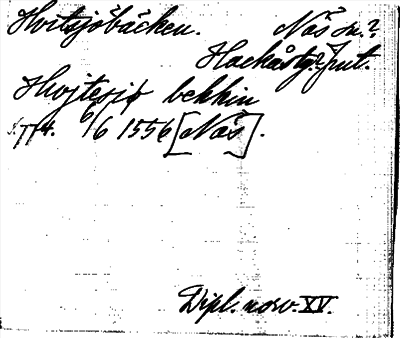 Hvitsjöbäcken. Näs sn.?
Hackås tg.? Jmt.
Hvojtesiø bekkin
s. 774. 6/6 1556 [Näs].
Dipl. norv. XV.